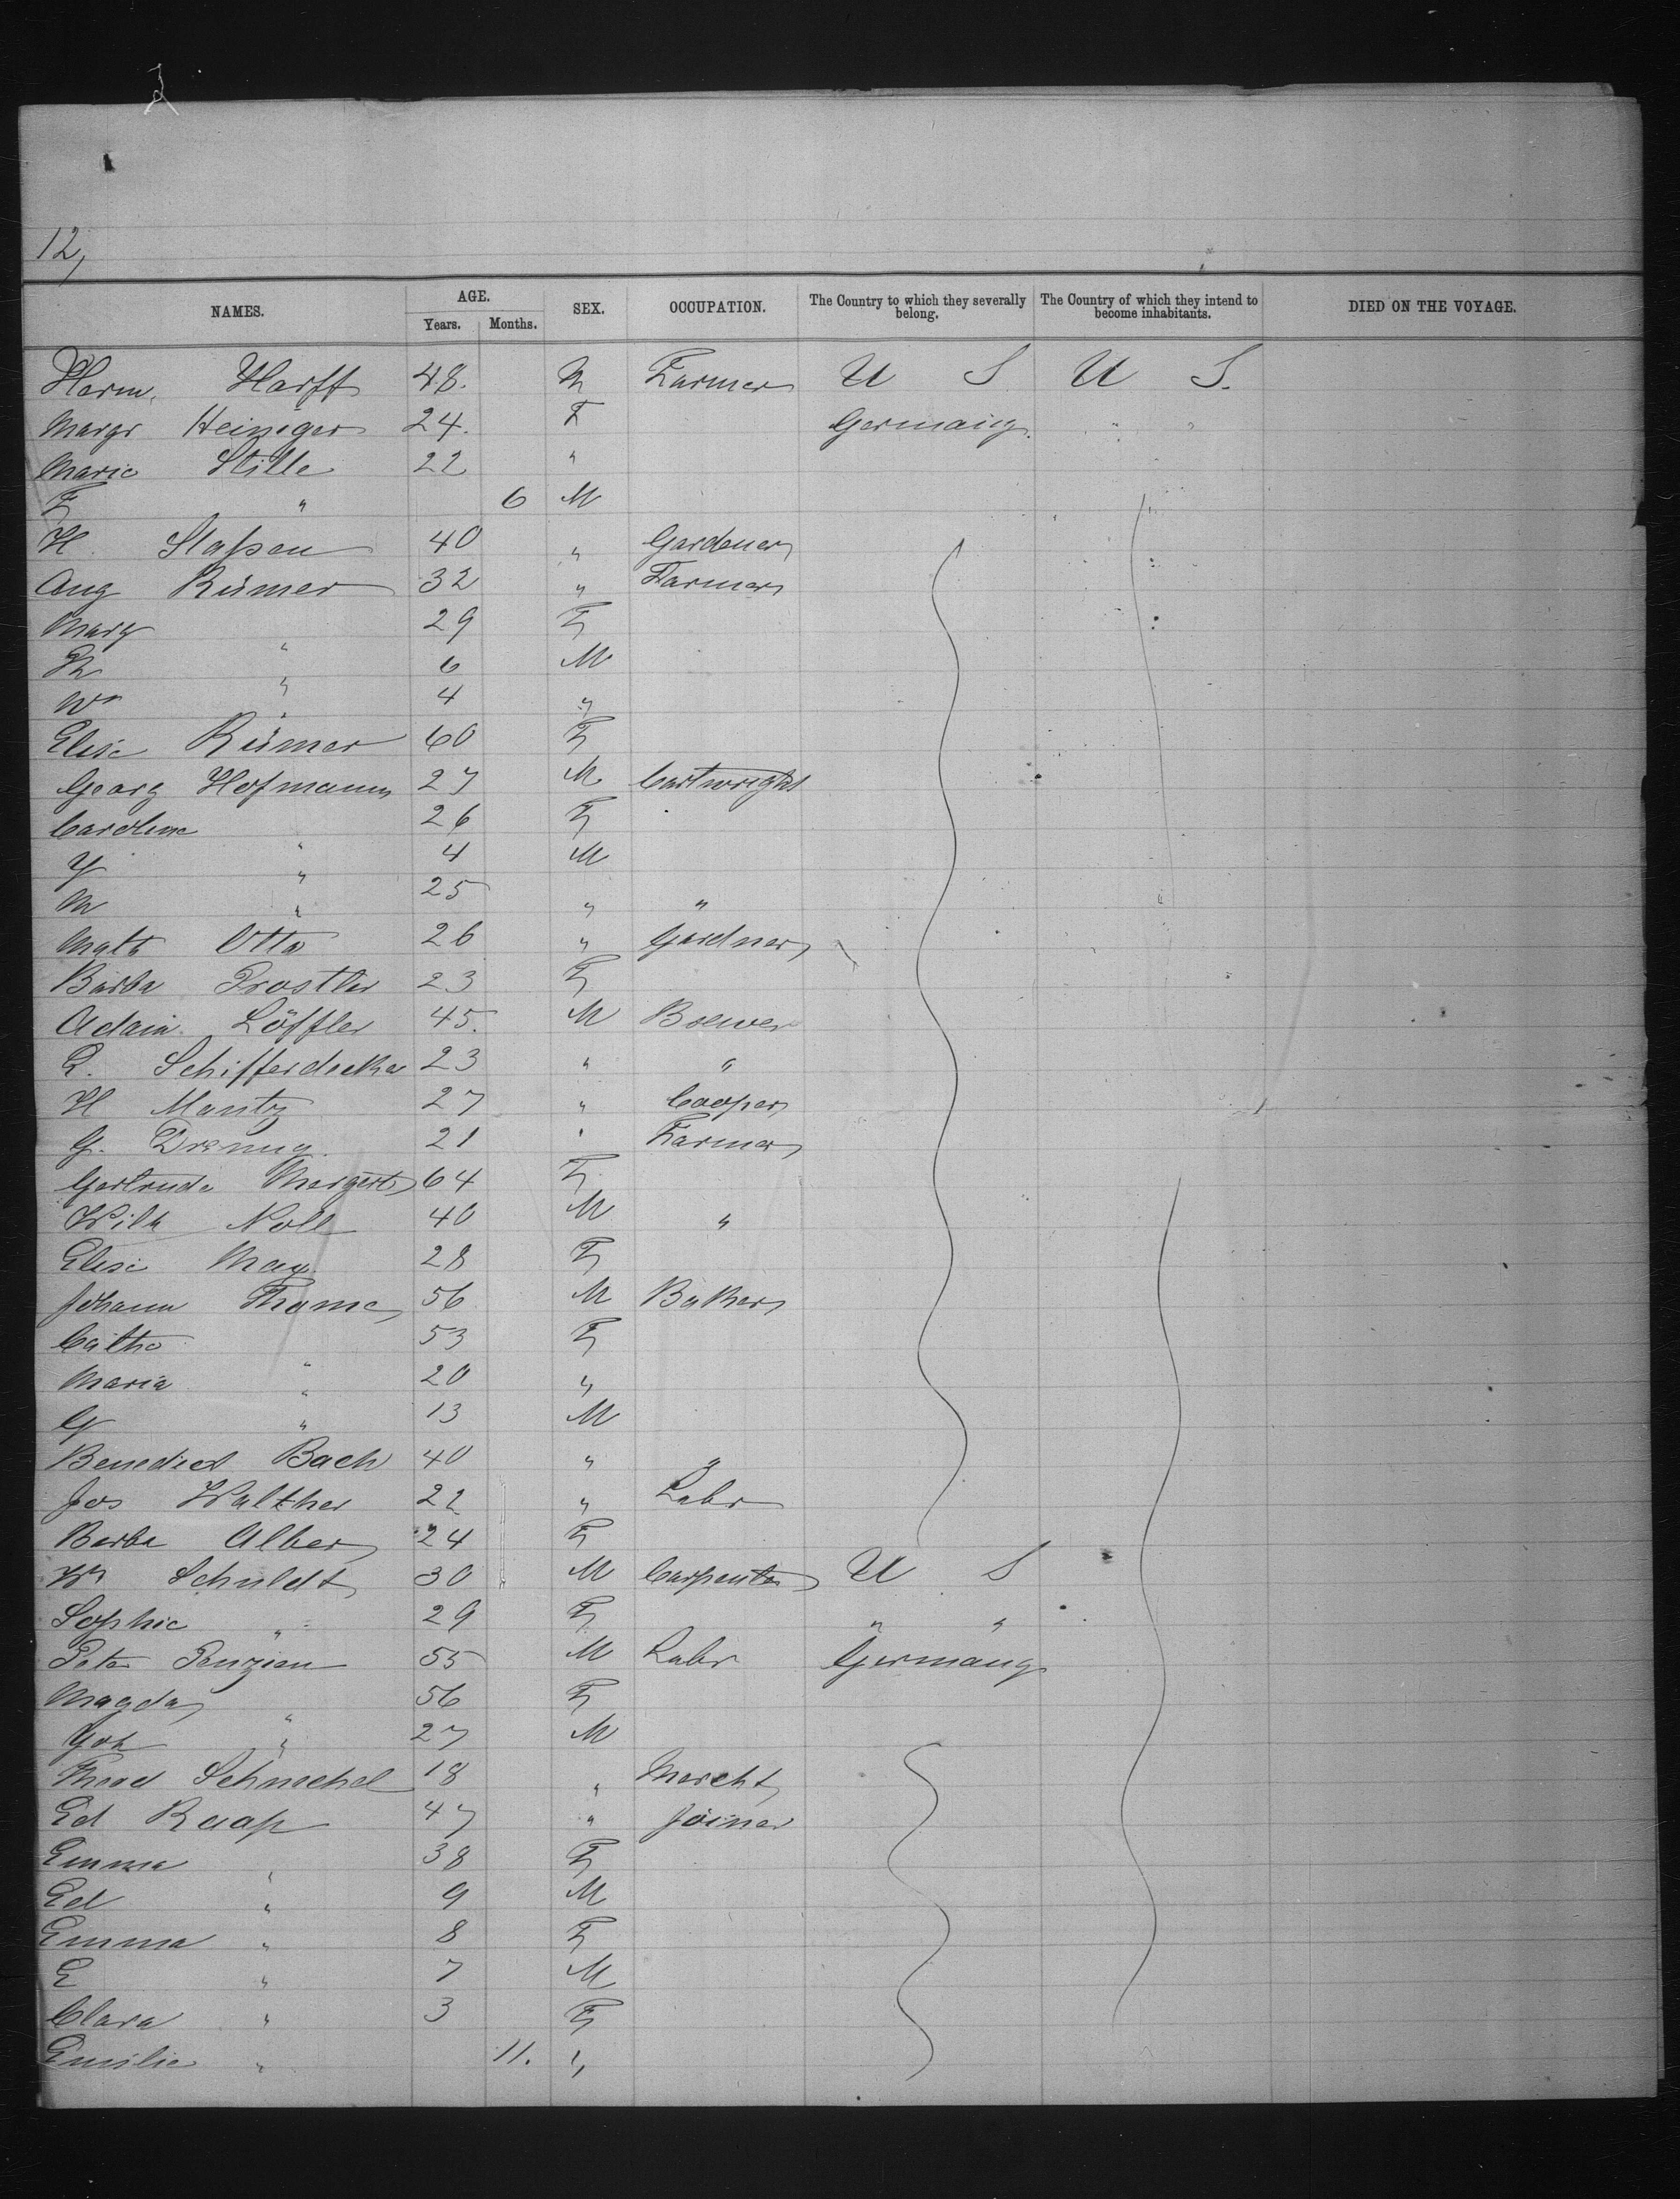 12,
NAMES. AGE. SEX. OCCUPATION. The Country to which they severally belong. The Country of which they intend to become inhabitants. DIED ON THE VOYAGE.
Years. Months.
Herm. Harff 48. M Farmer U S U S.
Margr Heiniger 24. F Germany. " "
Marie Stille 22 "
F " 6 M "
H. Slaßen 40 " Gardener
Aug Rümer 32 " Farmer
Marg " 29 F
" 6 M
Wm " 4 "
Elise Rümer 60 F
Georg Hofmann 27 M Cartwright
Caroline " 26 F
" 4 M
M " 25 " "
Math Otto 26 " Gardner
Barba Prostler 23 F
Adam Löffler 45. M Brewer
Schifferdecker 23 " "
H Mantz 27 " Cooper
G. 21 " Farmer
Gertrude Mergert 64 F
Wilh Noll 40 M "
Elise May 28 F
Johann Thome 56 M Baker
Cathe " 53 F
Maria " 20 "
G " 13 M
Benedict Bach 40 " "
Jos Walther 22 " Labr
Barba Alber 24 F
Wm Schuldt 30 M Carpenter U S
Sophie " 29 F " "
Peter Penzien 55 M Labr Germany
Magda " 56 F
Joh " 27 M
Theod Schnechel 18 " Mercht
Ed Raap 47 " Joiner
Emma " 38 F
Ed " 9 M
Emma " 8 F
E " 7 M
Clara " 3 F
Emilie " 11. "